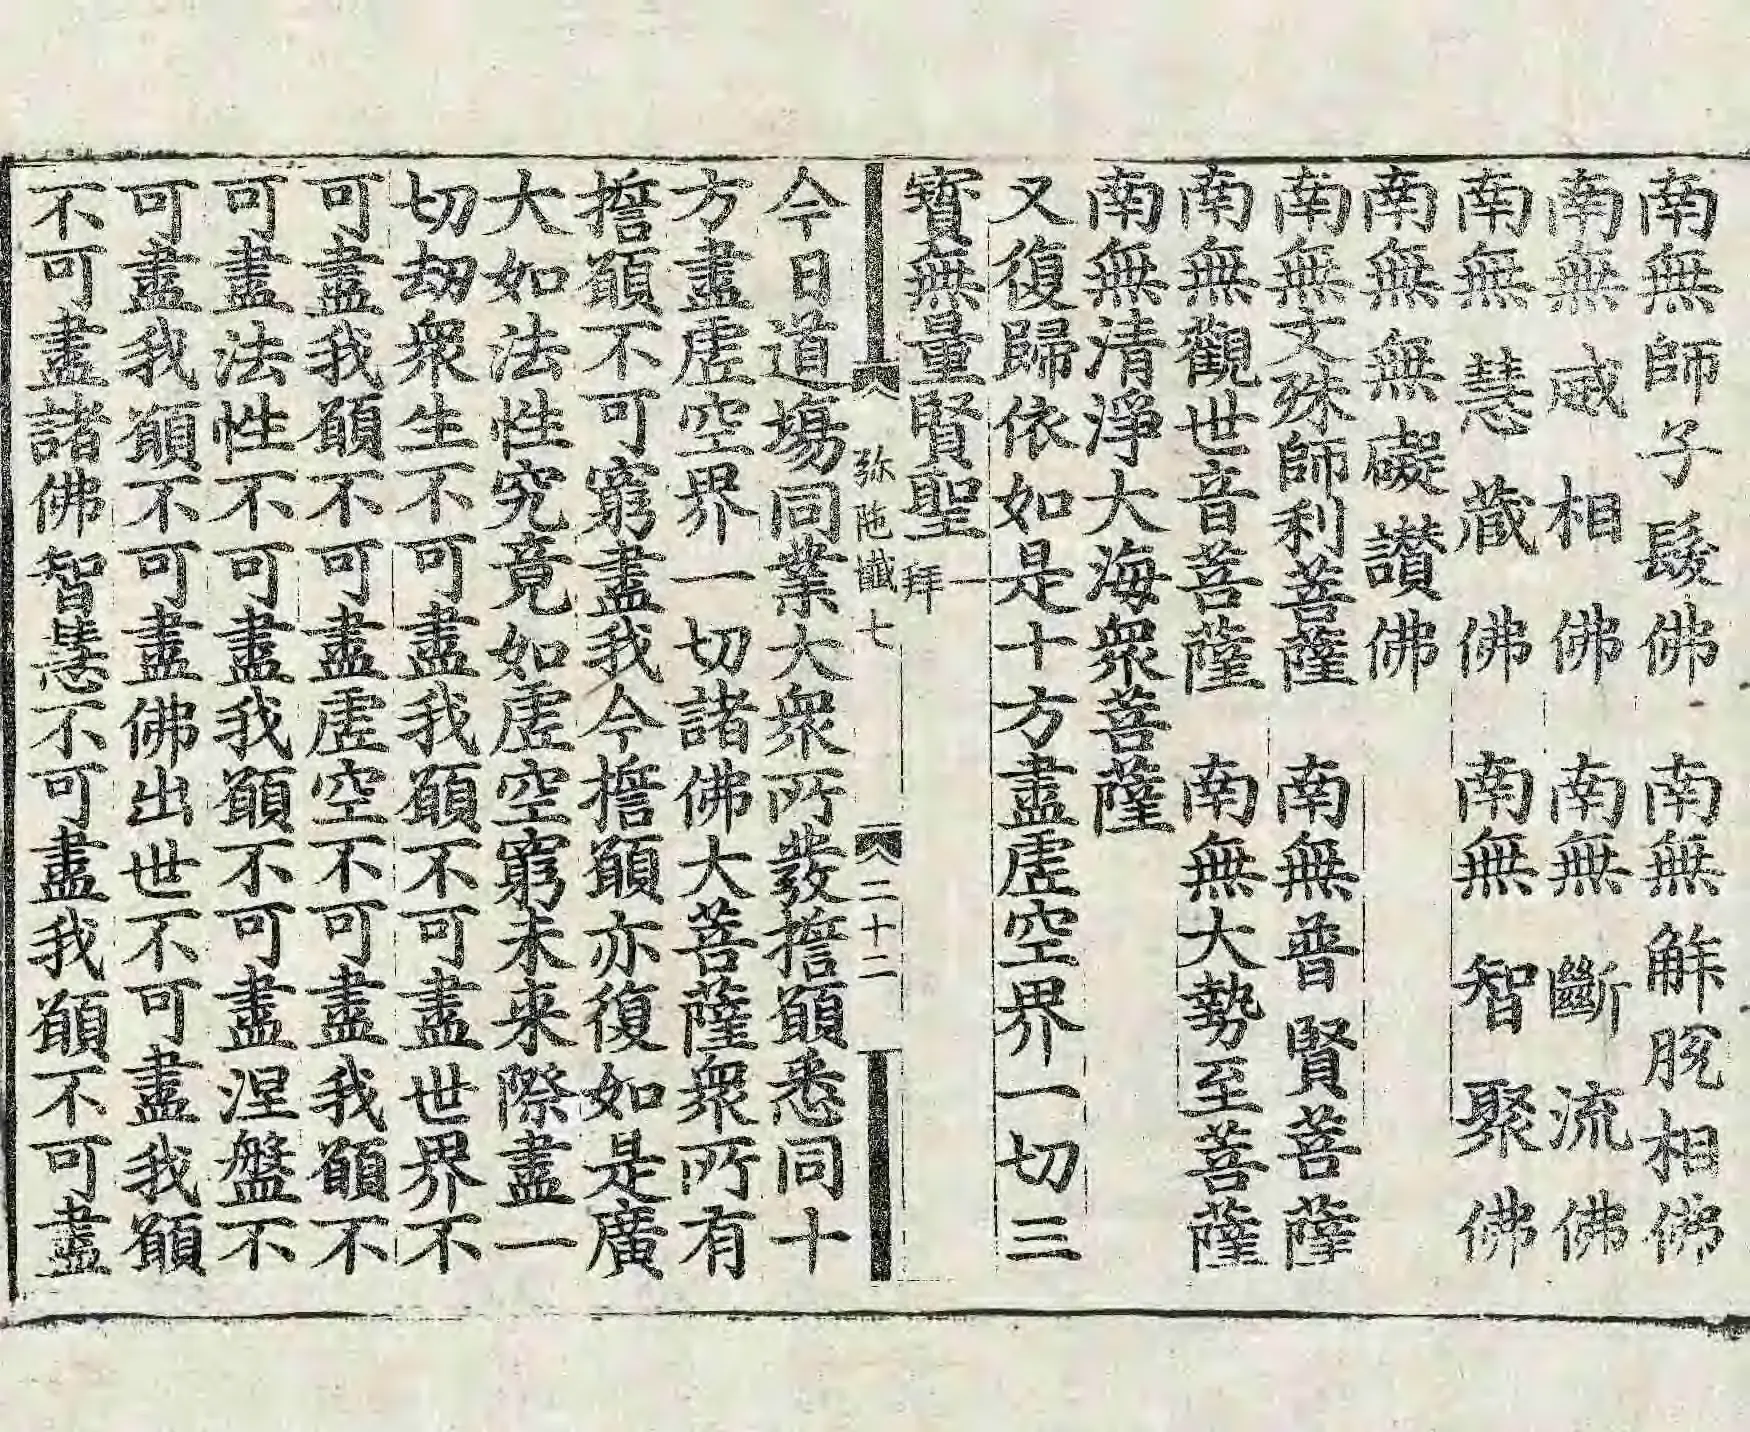 南無師子髮佛　南無解脫相佛
南無威相佛　南無斷流佛
南無慧藏佛　南無智聚佛
南無無礙讃佛
南無文殊師利菩薩　南無普賢菩薩
南無觀世音菩薩　南無大勢至菩薩
南無清淨大海衆菩薩
又復歸依如是十方盡虛空界一切三
寶無量賢聖一拜
弥陁懺七　二十二
今日道塲同業大衆所發擔頟悉同十
方盡虛空界一切諸佛大菩薩衆所有
擔頟不可窮盡我今擔頟亦復如是廣
大如法性究竟如虛空窮未来際盡一
切劫衆生不可盡我頟不可盡世界不
可盡我頟不可盡虛空不可盡我頟不
可盡法性不可盡我頟不可盡涅盤不
可盡我頟不可盡佛出世不可盡我頟
不可盡諸佛智慧不可盡我頟不可盡